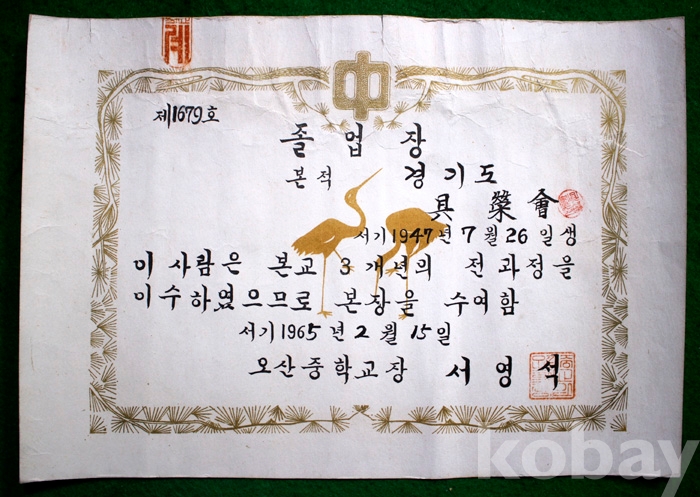 中
제1679호
졸업장
본적 경기도
具榮會
서기 1947년 7월 26일생
이 사람은 본교 3개년의 전과정을
이수하였으므로 본장을 수여함
서기 1965년 2월 15일
오산중학교장 서영석
kobay